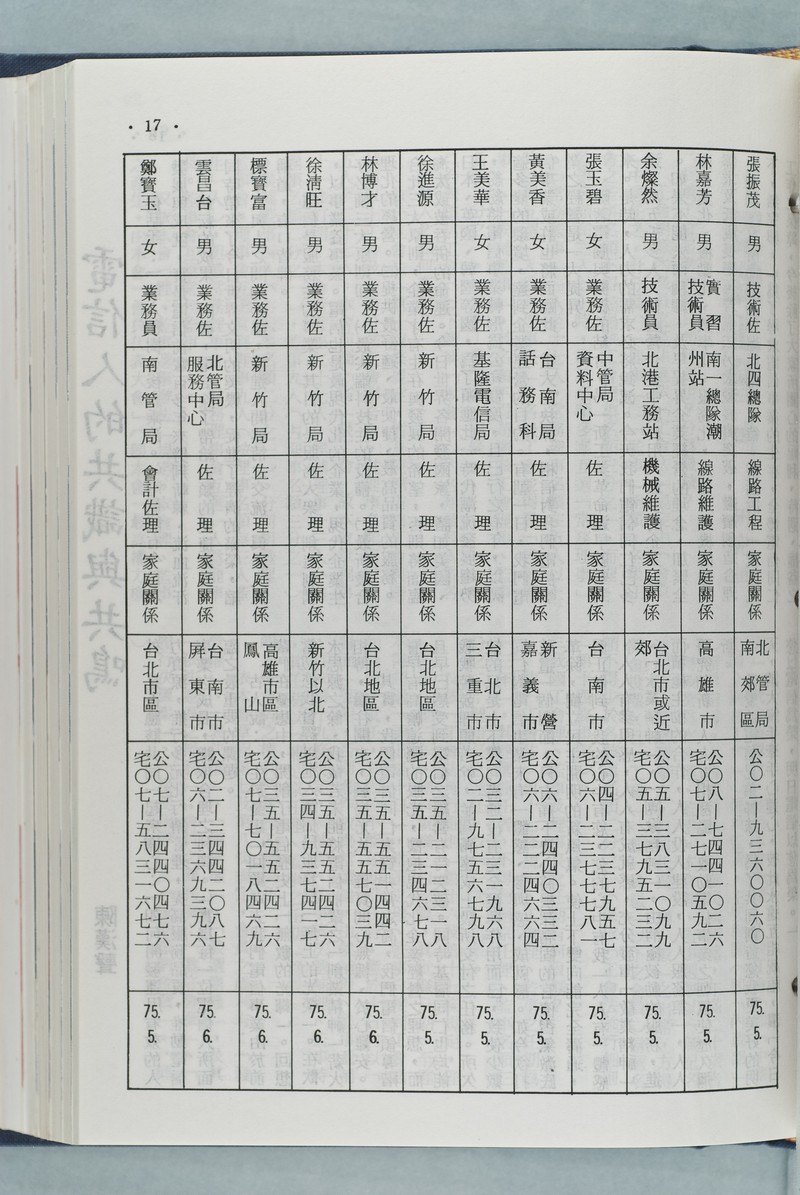 · 17 ·
張振茂 男 技術佐 北四總隊 線路工程 家庭關係 北管局南郊區 公〇二—九三六〇〇六〇 75. 5.
林嘉芳 男 實習技術員 南一總隊潮州站 線路維護 家庭關係 高雄市 公〇八—七四四一〇二六 宅〇七—二七一〇五九二 75. 5.
余燦然 男 技術員 北港工務站 機械維護 家庭關係 台北市或近郊 公〇五—三八三一〇九九 宅〇五—三七九五二三二 75. 5.
張玉碧 女 業務佐 中管局資料中心 佐理 家庭關係 台南市 公〇四—二二三七九五七 宅〇六—二三七七七八一 75. 5.
黃美香 女 業務佐 台南局話務科 佐理 家庭關係 新營嘉義市 公〇六—二四四〇三三二 宅〇六—二二二四六六四 75. 5.
王美華 女 業務佐 基隆電信局 佐理 家庭關係 台北市三重市 公〇三二—二三一九六八 宅〇二—九七五六七九八 75. 5.
徐進源 男 業務佐 新竹局 佐理 家庭關係 台北地區 公〇三五—二一二三一八 宅〇三五—二三四六七八 75. 5.
林博才 男 業務佐 新竹局 佐理 家庭關係 台北地區 公〇三五—五五一四四二 宅〇三五—五五七〇三九 75. 6.
徐清旺 男 業務佐 新竹局 佐理 家庭關係 新竹以北 公〇三五—五五二四二六 宅〇三四—九三七四一七 75. 6.
標寶富 男 業務佐 新竹局 佐理 家庭關係 高雄市區鳳山 公〇三五—五五二四二六 宅〇七—七〇一八四六九 75. 6.
雲昌台 男 業務佐 北管局服務中心 佐理 家庭關係 台南市屏東市 公〇二—三四四二〇八七 宅〇六—二三六九三九六 75. 6.
鄭寶玉 女 業務員 南管局 會計佐理 家庭關係 台北市區 公〇七—二四四〇四七六 宅〇七—五八三一六七二 75. 5.